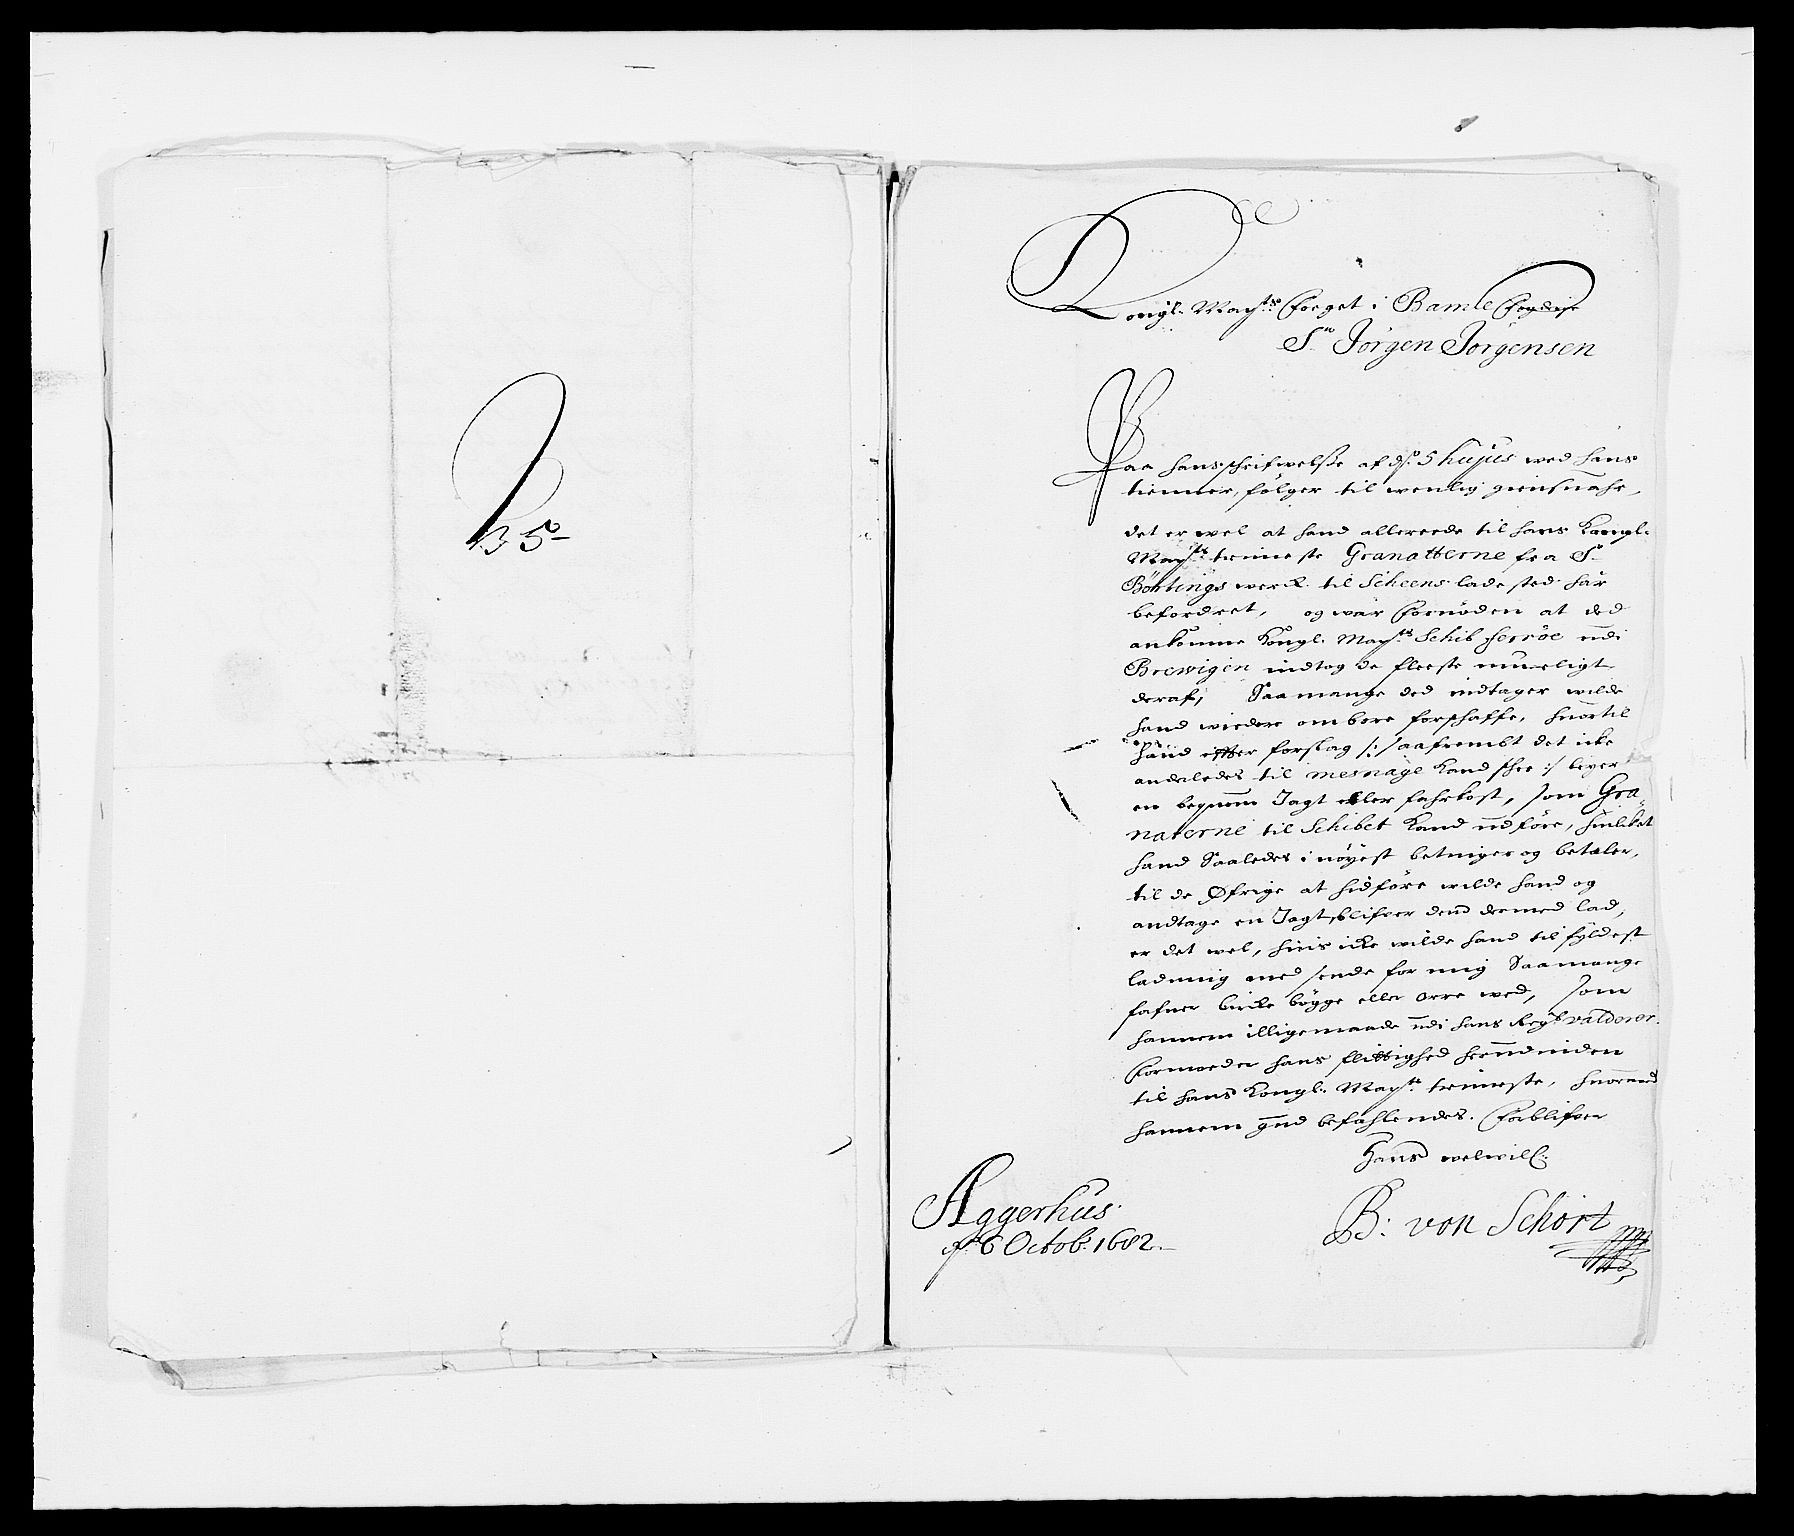 135
Kongl. Mayts. Foeget i Bamle Fogderie
Sr. Jörgen Jörgensen
Paa hans schrifwelsse af ds. 5 hujus wed hans
tienner, følger til wenlig giensuahr,
det er wel at hand allereede til hans Kongl.
Mayts. tienneste Granatterne fra Sr.
Böhtings werck til Scheens ladested har
befordret, og war fornøden at ded
ankomne Kongl. Mayts. Schib ferröe udi
Brewigen indtog de fleeste mueligt
deraf, Saamange ded indtager wilde
hand wiedere ombore forschaffe, huortil
hand efter forslag /: saafrembt det icke
anderledes til mesnage kand schee :/ leyer
en beqwem Jagt eller fahrkost, som Gra
naterne til Schibet kand udföre, huilket
hand Saaledes i nöyest betinger og betaler,
til de Øfrige at hidföre wilde hand og
andtage en Jagt, blifver dend dermed lad,
er det wel, huis icke wilde hand til fyldest
ladning med sende for mig Saamange
fafner bircke bögge eller orre wed, som
hannem illigemaade udi hans Regsb valderer.
Formoeder hans flittighed herudinden
til hans Kongl. Mayts. tienneste, huormed
hannem gud befahlendes. Forblifver
Hans welwill:
Aggerhus
ds. 6 Octob. 1682.
B: von Schort